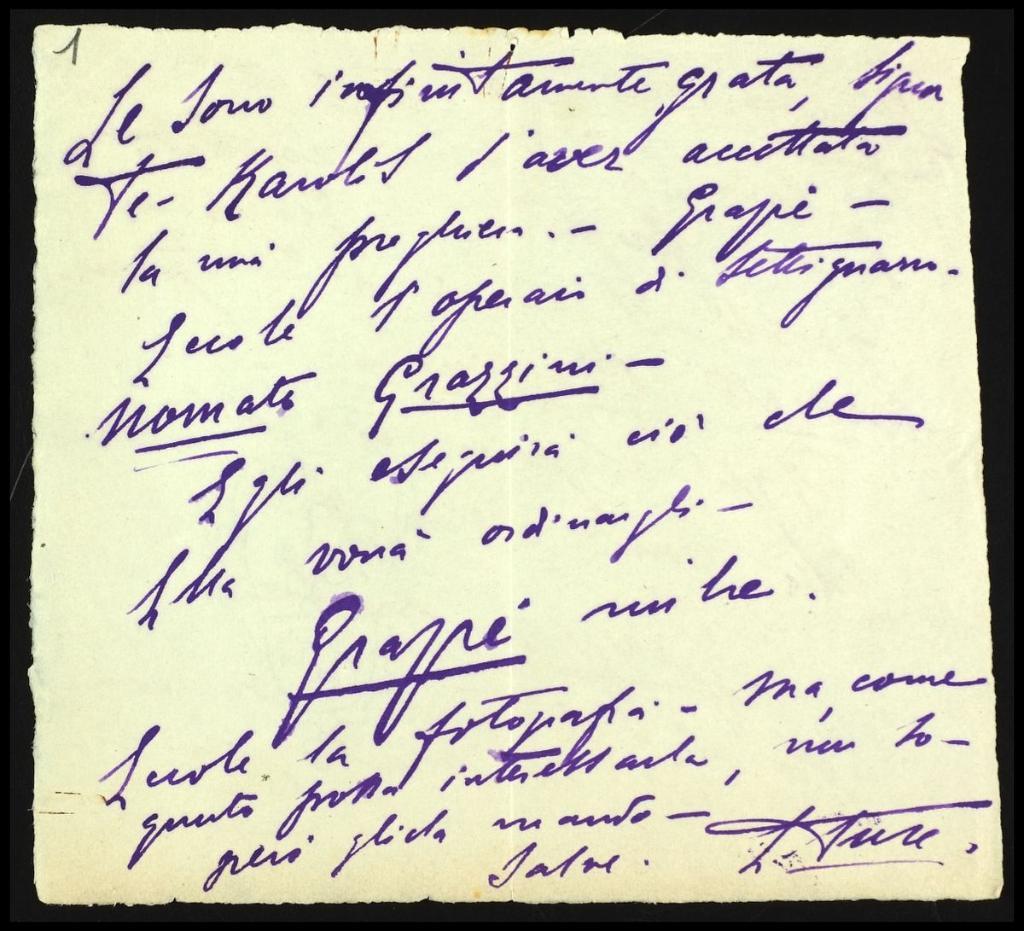 1
Le sono infinitamente grata, Signor
Te- Karolis d'aver accettata
la mia preghiera. - Grazie -
Eccole l'operaio di Settignano.
Nomato Grazzini -
Egli eseguirà ciò che
Ella vorrà ordinargli -
Grazie mille.
Eccole la fotografia - ma, come
questo possa interessarla, non so -
però gliela mando -
Salve. E. Duse.